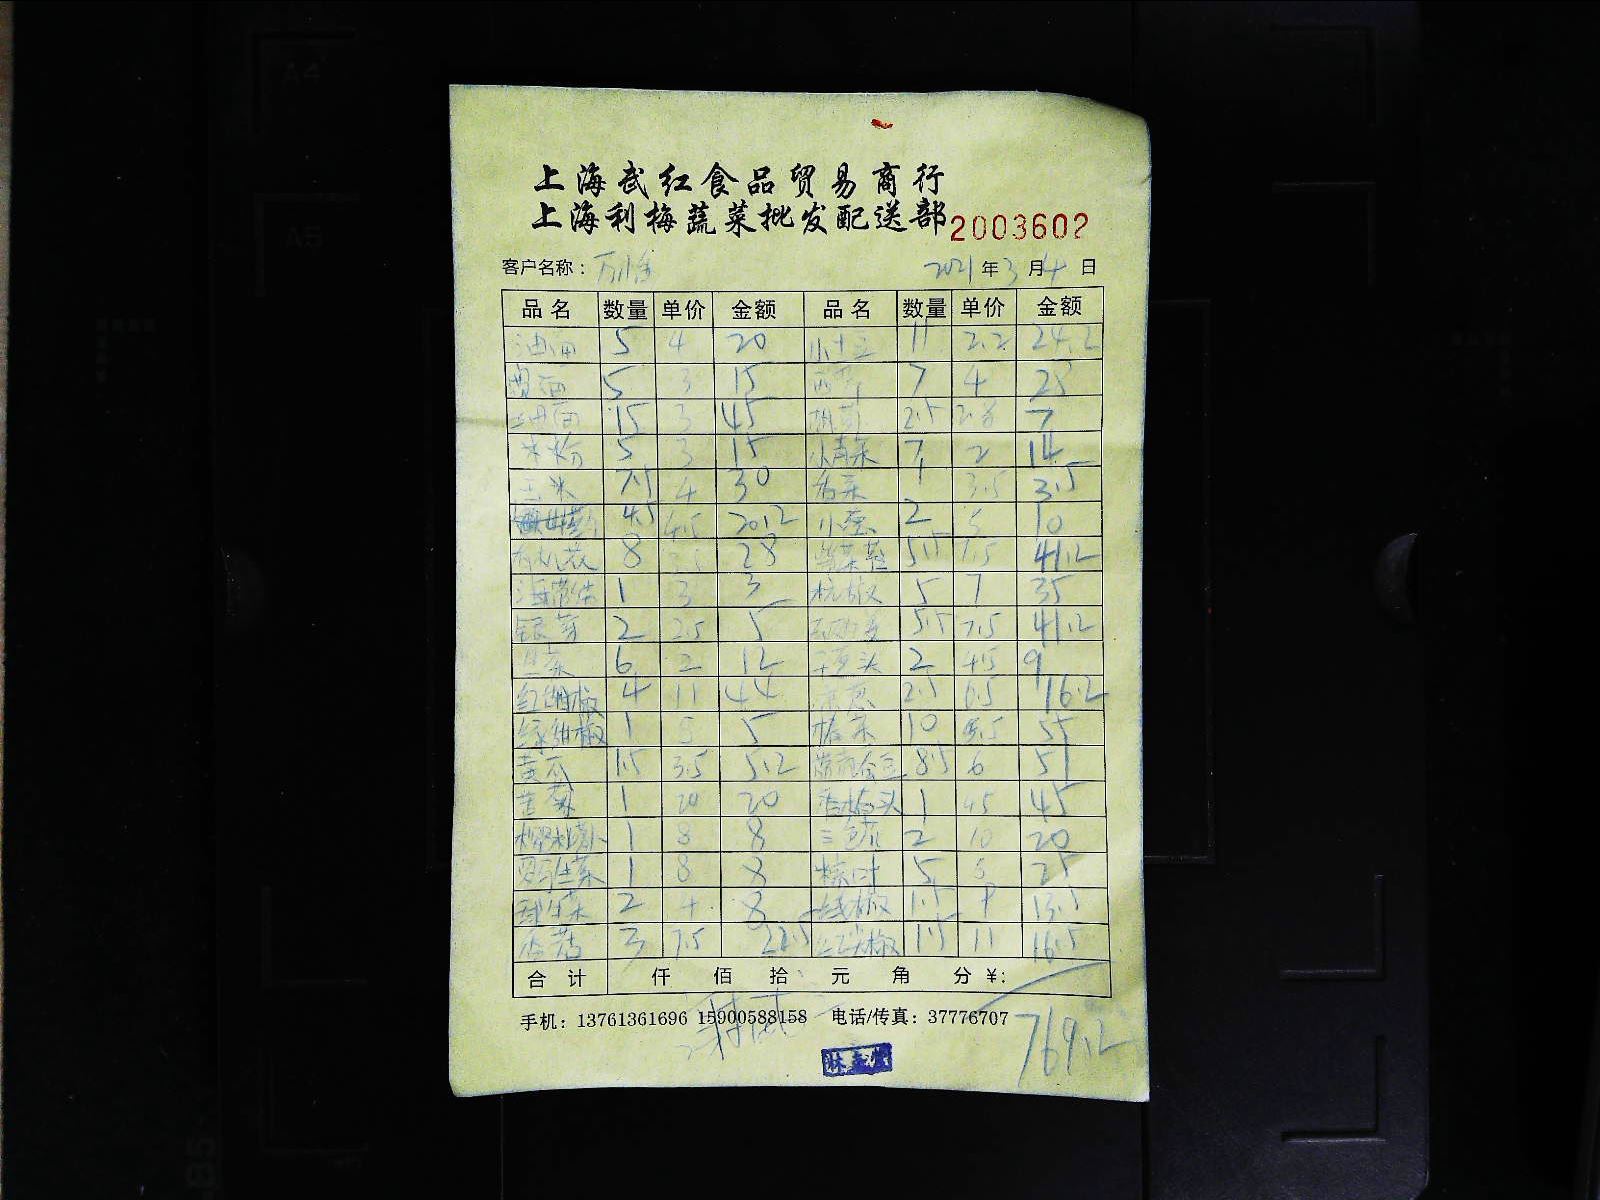 上海武红食品贸易商行
上海利梅蔬菜批发配送部 2003602
客户名称: 万怡 2021年3月4日
品名 数量 单价 金额 品名 数量 单价 金额
油面 5 4 20 小土豆 11 2.2 24.2
5 3 15 西芹 7 4 28
15 3 45 胡萝 2.5 2.8 7
米粉 5 3 15 小青菜 7 2 14
玉米 7.5 4 30 香菜 1 3.5 3.5
4.5 4.5 20.2 小葱 2 5 10
有机花 8 3.5 28 5.5 7.5 41.2
海带结 1 3 3 杭椒 5 7 35
银芽 2 2.5 5 5.5 7.5 41.2
6 2 12 干豆头 2 4.5 9
红甜椒 4 11 44 2.5 6.5 16.2
绿甜椒 1 5 5 10 5.5 55
黄瓜 1.5 3.5 5.2 8.5 6 51
苦菊 1 20 20 1 45 45
樱桃萝卜 1 8 8 三色 2 10 20
罗马生菜 1 8 8 粽叶 5 5 25
球生菜 2 4 8 线椒 1.5 9 13.5
香菇 3 7.5 22.5 红尖椒 1.5 11 16.5
合计 仟 佰 拾 元 角 分 ¥:
手机: 13761361696 15900588158 电话/传真: 37776707
769.2